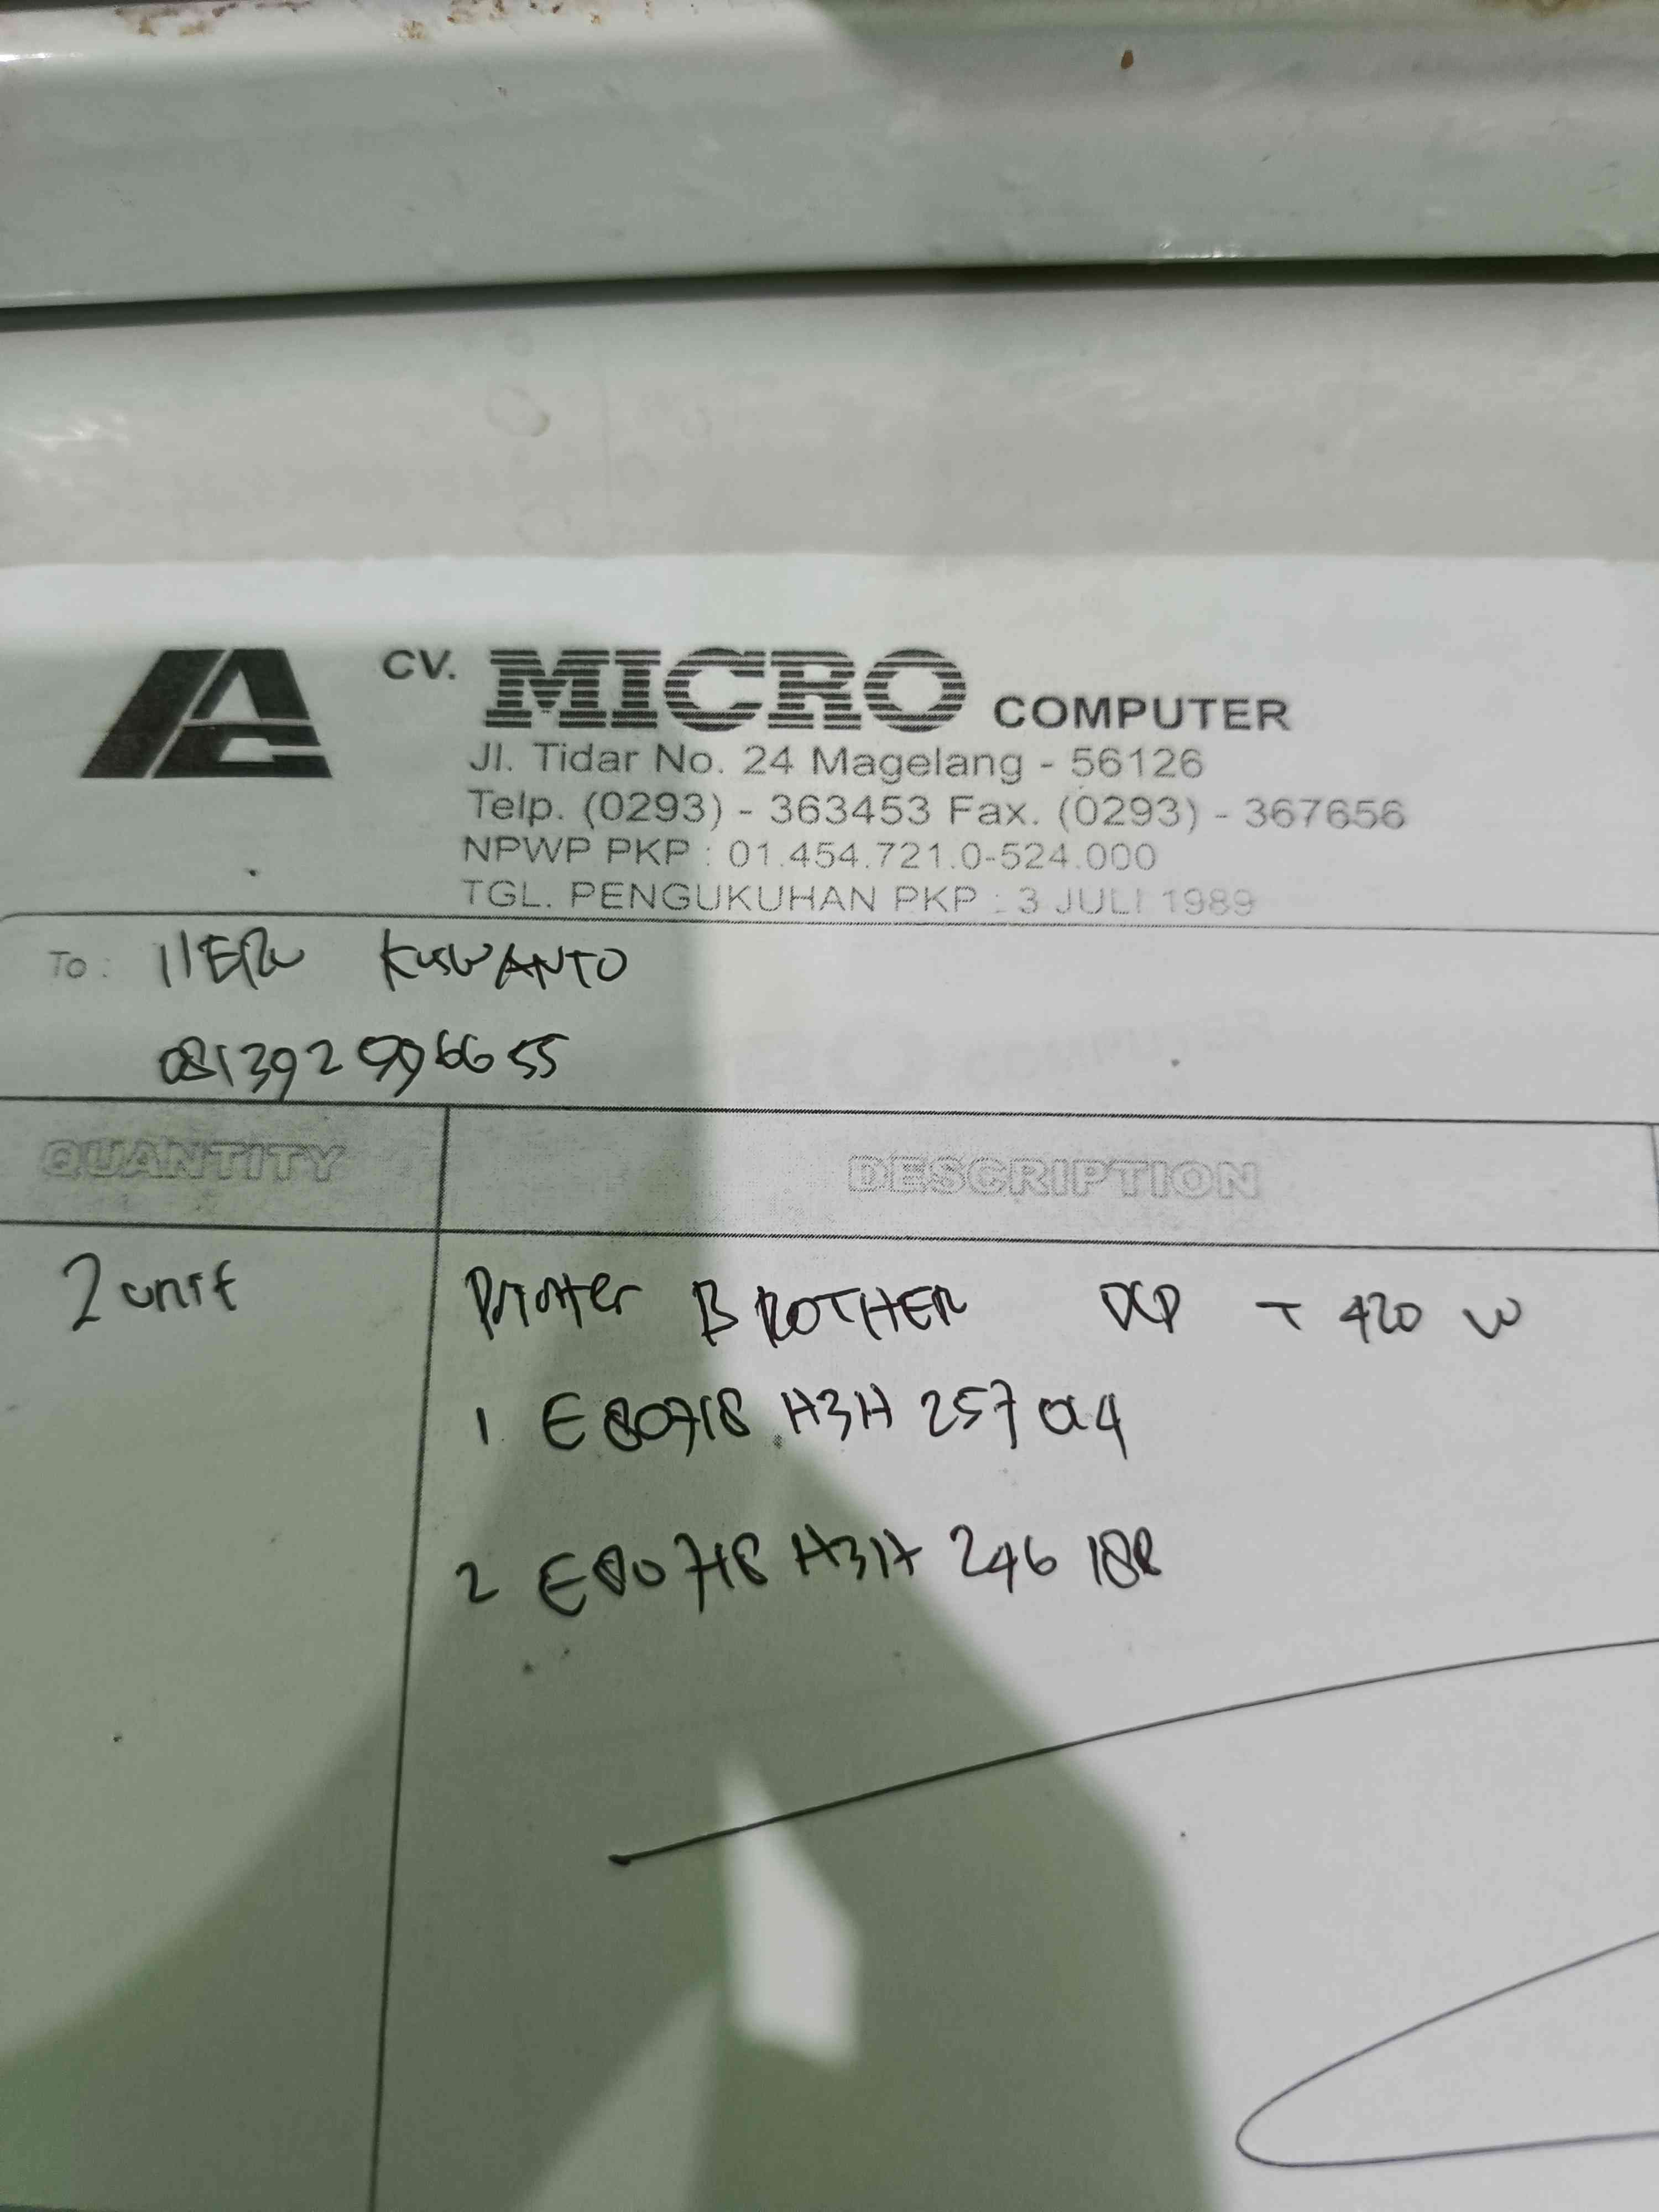 CV. MICRO COMPUTER
Jl. Tidar No. 24 Magelang - 56126
Telp. (0293) - 363453 Fax. (0293) - 367656
NPWP PKP : 01.454.721.0-524.000
TGL. PENGUKUHAN PKP : 3 JULI 1989
To : HERU KUSWANTO
QUANTITY DESCRIPTION
2 unit Printer BROTHER DCP T 420 W
1 E80718 H3H 257
2 E80718 H3H 246 188